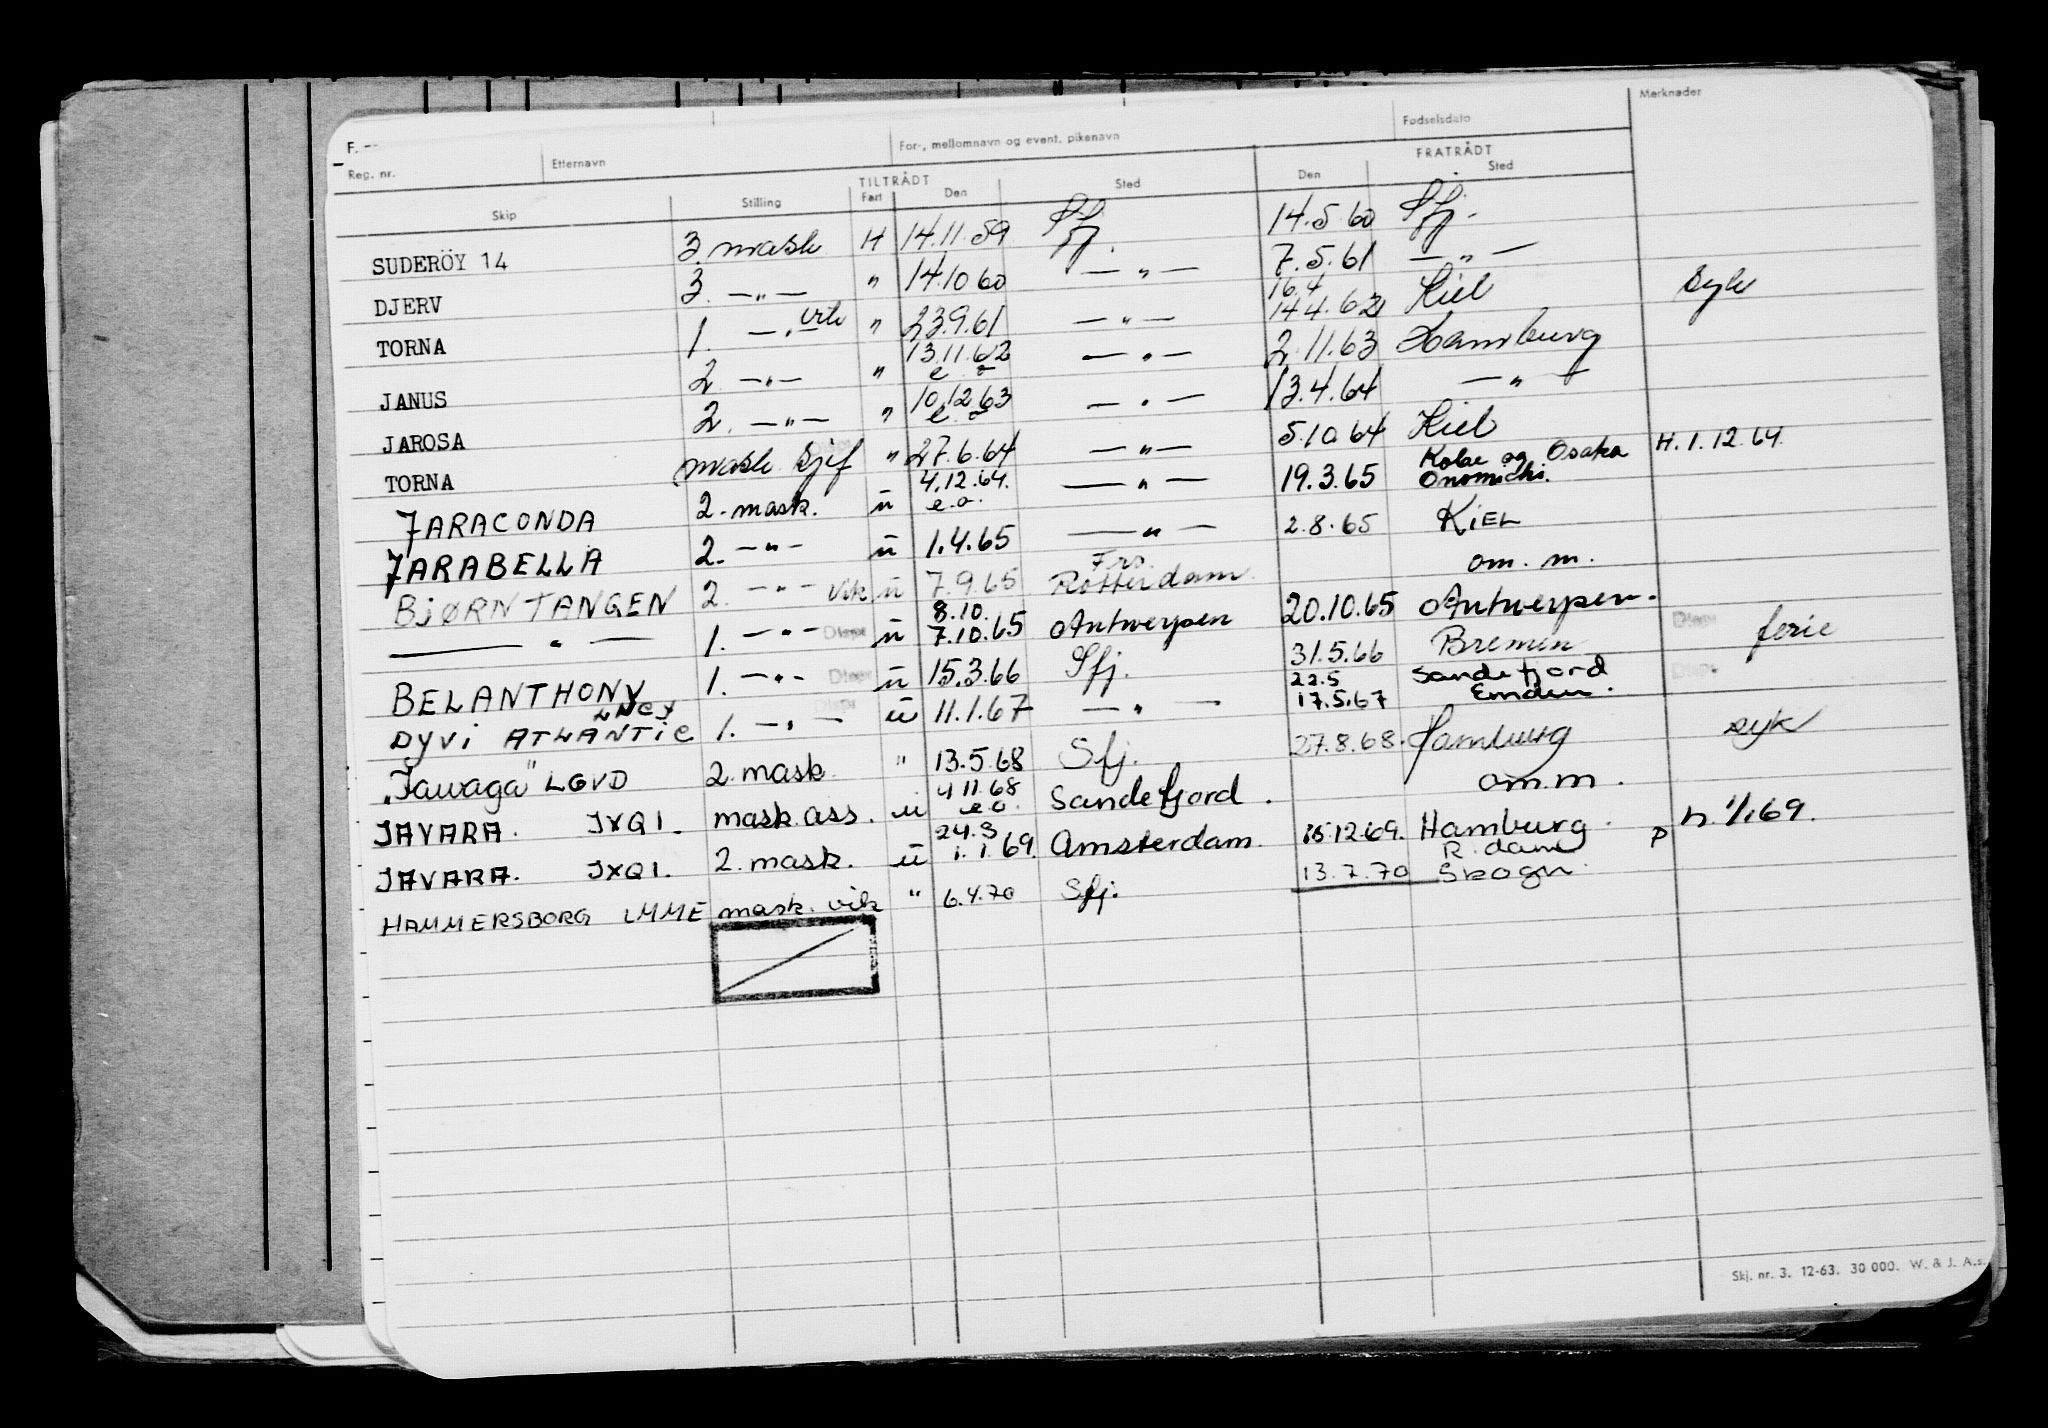 F. --
Reg. nr. Etternavn For-, mellomnavn og event. pikenavn Fødselsdato Merknader
TILTRÅDT FRATRÅDT
Skip Stilling Fart Den Sted Den Sted
SUDERÖY 14 3. mask H 14.11.59 Sfj. 14.5.60 Sfj.
DJERV 3. —„— " 14.10.60 —„— 7.5.61 —„—
TORNA 1. —„— vik " 23.9.61 —„— 16.4 14.4.62 Kiel syk
JANUS 2. —„— " 13.11.62 e.o —„— 2.11.63 Hamburg
JAROSA 2. —„— " 10.12.63 e.o —„— 13.4.64 —„—
TORNA mask Sjef " 27.6.64 —„— 5.10.64 Kiel
JARACONDA 2. mask. u 4.12.64. e.o. —„— 19.3.65 Kobe og Osaka Onomichi. H. 1.12.64.
JARABELLA 2. —„— u 1.4.65 —„— 2.8.65 KIEL
BJØRN TANGEN 2. —„— vik u 7.9.65 Rotterdam om. m.
—„— 1. —„— Disp u 8.10. 7.10.65 Antwerpen 20.10.65 Antwerpen.
BELANTHONY 1. —„— Disp u 15.3.66 Sfj. 31.5.66 Bremen Disp ferie
DYVI ATLANTIC LNCY 1. —„— Disp u 11.1.67 —„— 22.5 17.5.67 Sandefjord Emden. Disp
„Jawaga" LGVD 2. mask " 13.5.68 Sfj. 27.8.68. Hamburg syk
JAVARA. JXQI. mask. ass. u 4.11.68 e.o. Sandefjord. om.m.
JAVARA. JXQI. 2. mask. u 24.3 1.1.69. Amsterdam. 15.12.69. Hamburg. p h. 1/1.69.
HAMMERSBORG LMME mask. vik " 6.4.70 Sfj. 13.7.70 R.dam Skogn.
Skj. nr. 3. 12-63. 30 000. W. & J. A.s.